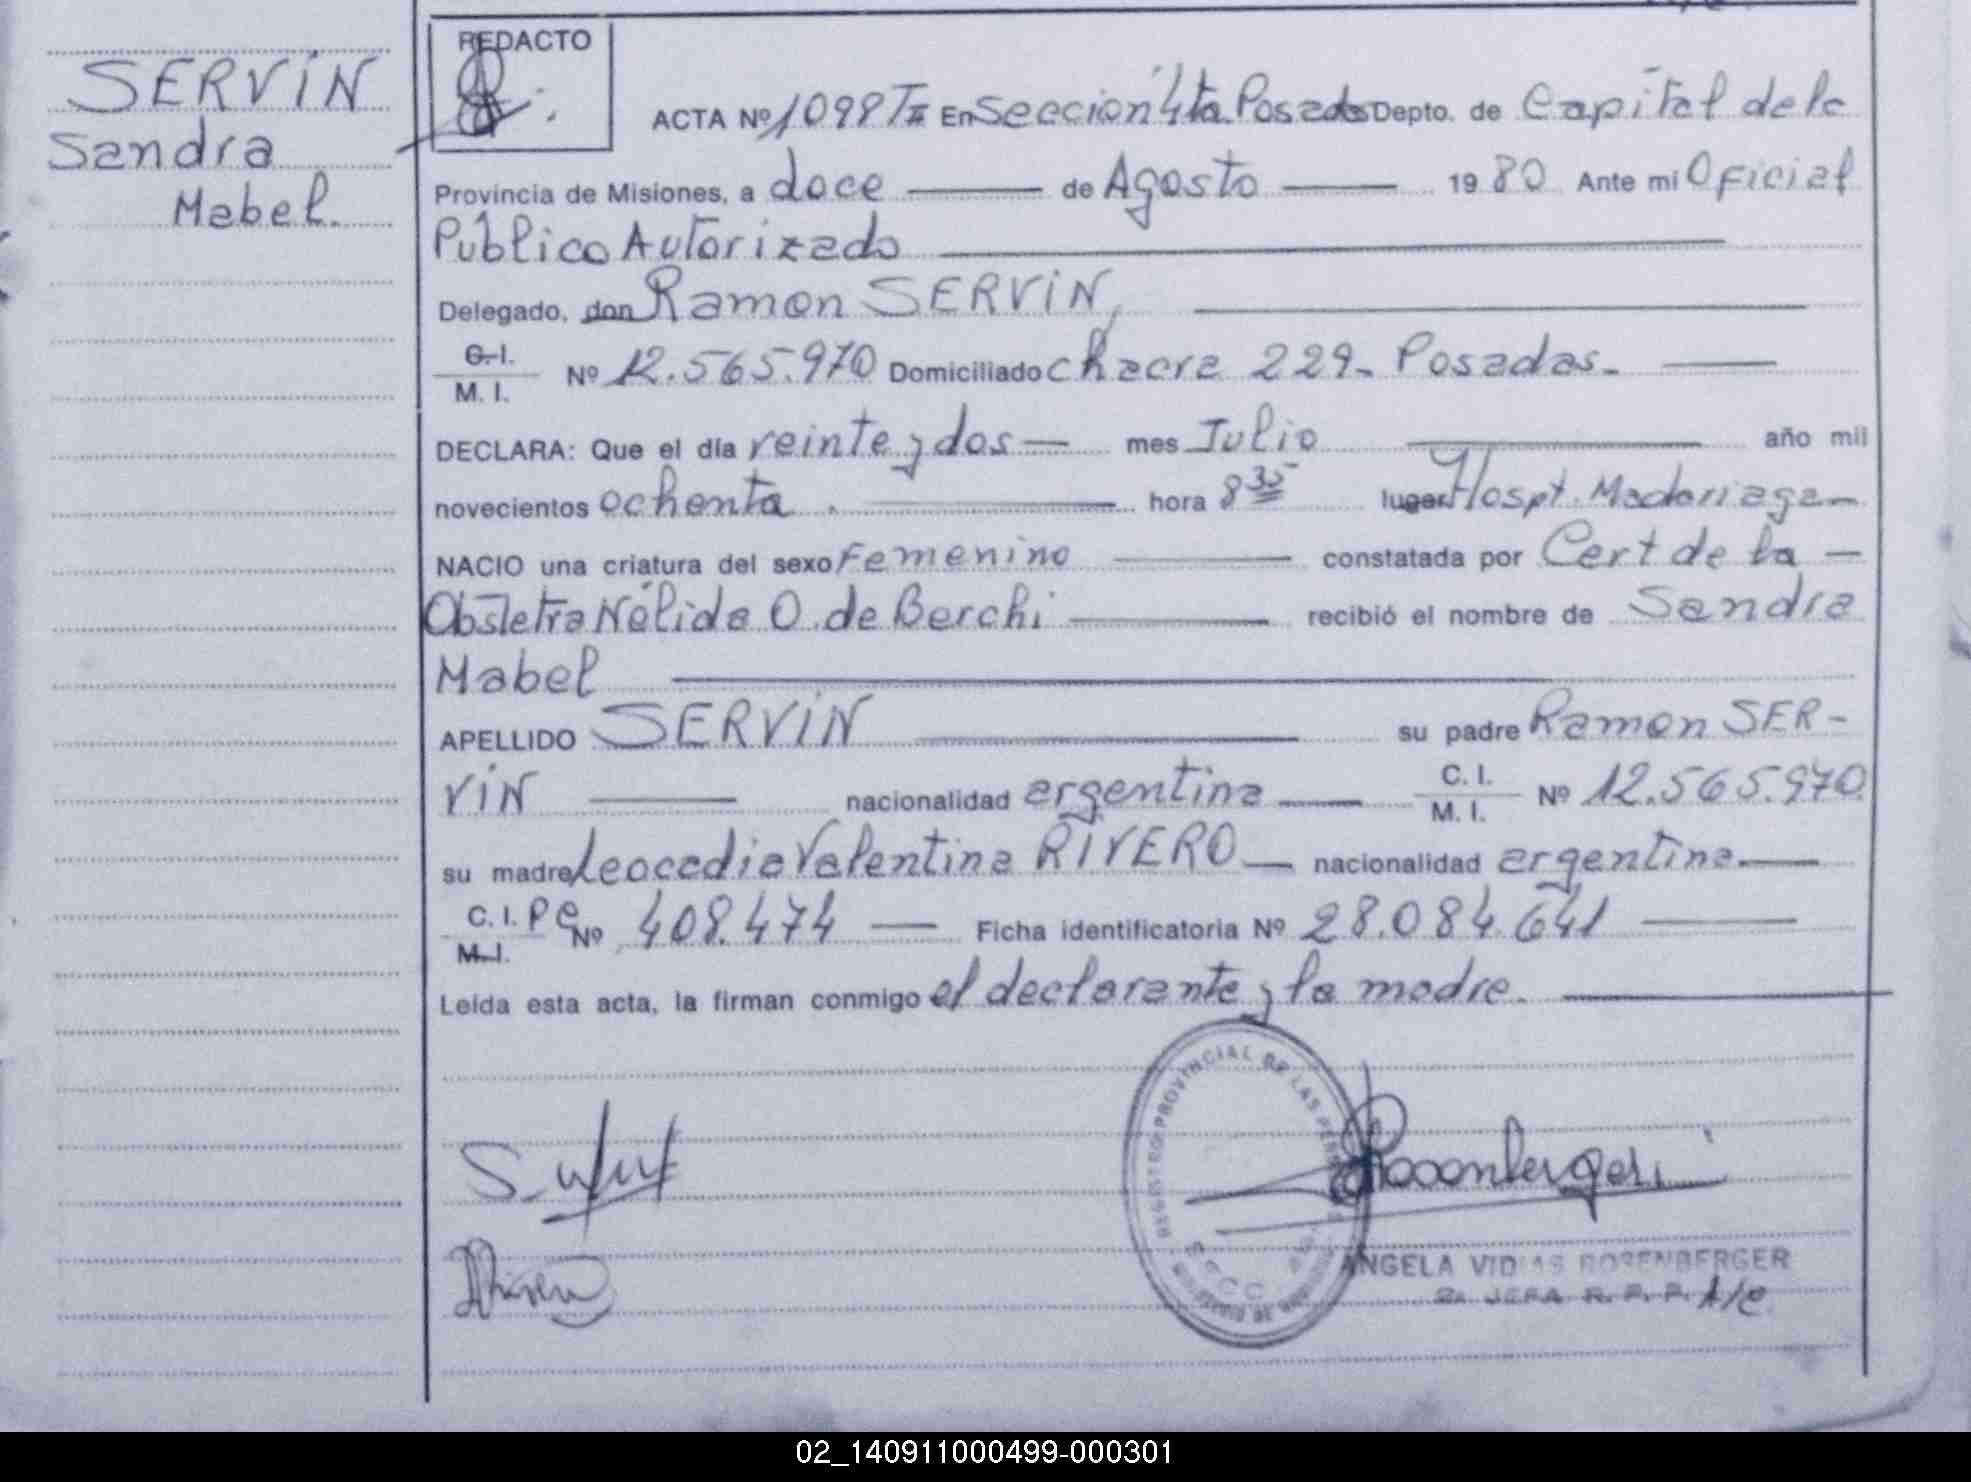 SERVIN
Sandra
Mabel.
REDACTO
ACTA Nº 1098 TII En Seccion 4ta Posadas Depto. de Capital de la
Provincia de Misiones, a doce de Agosto 19 80 Ante mi Oficial
Público Autorizado
Delegado, don Ramon SERVIN,
C. I.
M. I. Nº 12.565.970 Domiciliado chacra 229- Posadas.
DECLARA: Que el día veinte y dos mes Julio año mil
novecientos ochenta . hora 8 35 lugar Hospt. Madariaga
NACIO una criatura del sexo Femenino constatada por Cert de la
Obstetra Nélida O. de Berchi recibió el nombre de Sandra
Mabel
APELLIDO SERVIN su padre Ramon SER-
VIN nacionalidad argentina C. I. M. I. Nº 12.565.970
su madre Leocadia Valentina RIVERO nacionalidad argentina.
C. I. P C M. I. Nº 408.474 Ficha identificatoria Nº 28.084.641
Leída esta acta, la firman conmigo el declarante y la madre.
REGISTRO PROVINCIAL DE LAS PERSONAS
ANGELA VIDAS ROSENBERGER
2a. JEFA R. P. P. A/C
02_140911000499-000301